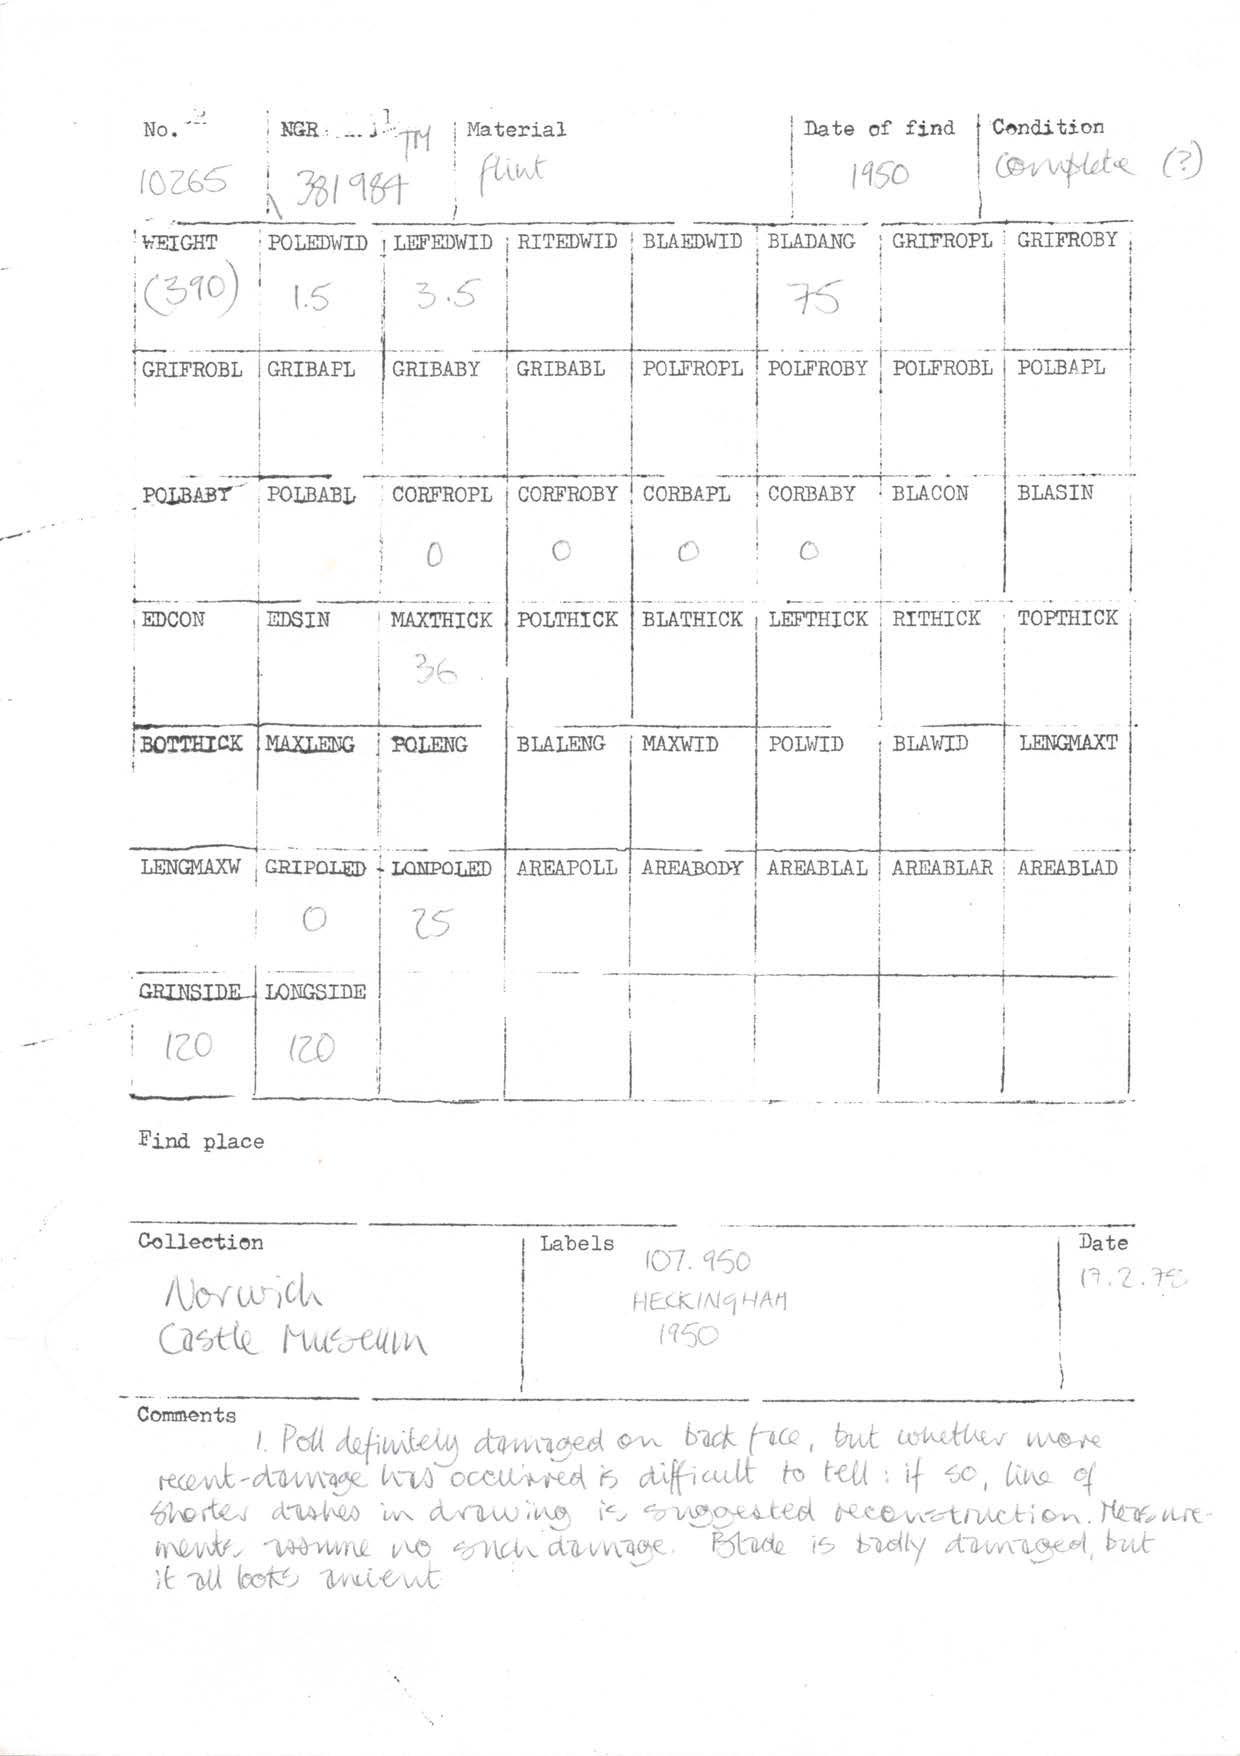 No. NGR TM Material Date of find Condition
10265 381984 flint 1950 complete (?)
WEIGHT POLEDWID LEFEDWID RITEDWID BLAEDWID BLADANG GRIFROPL GRIFROBY
(390) 1.5 3.5 75
GRIFROBL GRIBAPL GRIBABY GRIBABL POLFROPL POLFROBY POLFROBL POLBAPL
POLBABY POLBABL CORFROPL CORFROBY CORBAPL CORBABY BLACON BLASIN
0 0 0 0
EDCON EDSIN MAXTHICK POLTHICK BLATHICK LEFTHICK RITHICK TOPTHICK
36
BOTTHICK MAXLENG POLENG BLALENG MAXWID POLWID BLAWID LENGMAXT
LENGMAXW GRIPOLED LONPOLED AREAPOLL AREABODY AREABLAL AREABLAR AREABLAD
0 25
GRINSIDE LONGSIDE
120 120
Find place
Collection Labels Date
107.950
17.2.78
Norwich HECKINGHAM
Castle Museum 1950
Comments
1. Poll definitely damaged on back face, but whether more
recent-damage has occurred is difficult to tell: if so, line of
shorter dashes in drawing is suggested reconstruction. Measure-
ments assume no such damage. Blade is badly damaged, but
it all looks ancient